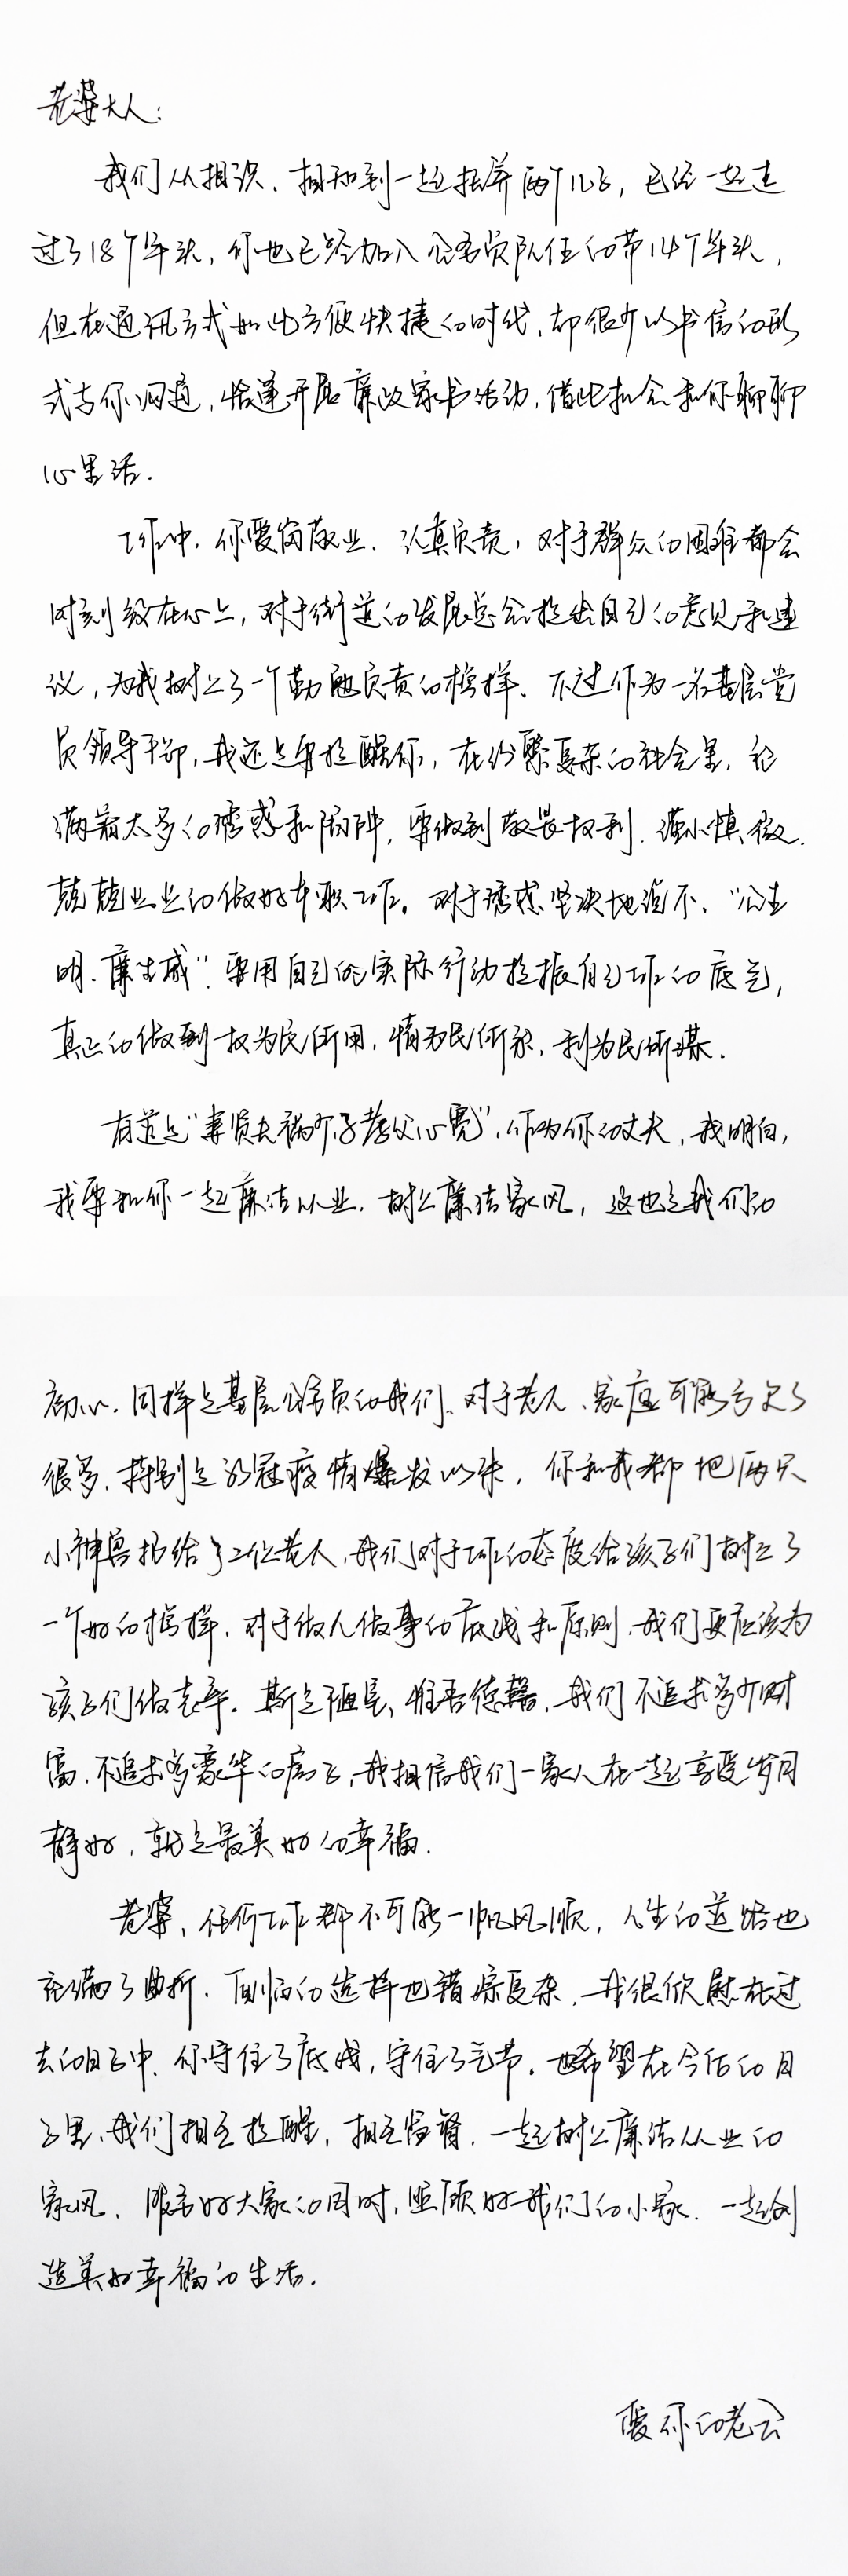 老婆大人：
我们从相识、相知到一起抚养两个儿子，已经一起走
过了18个年头，你也已经加入公务员队伍的第14个年头，
但在通讯方式如此方便快捷的时代，却很少以书信的形
式与你沟通，恰逢开展廉政家书活动，借此机会和你聊聊
心里话.
工作中，你爱岗敬业、认真负责，对于群众的困难都会
时刻放在心上，对于街道的发展总会提出自己的意见和建
议，为我树立了一个勤勉负责的榜样、不过作为一名基层党
员领导干部，我还是要提醒你，在纷繁复杂的社会里，充
满着太多的诱惑和陷阱，要做到敬畏权利、谨小慎微.
兢兢业业的做好本职工作。对于诱惑坚决地说不、“公生
明、廉生威”. 要用自己的实际行动提振自己工作的底气，
真正的做到权为民所用，情为民所系，利为民所谋.
有道是“妻贤夫祸少，子孝父心宽”，作为你的丈夫，我明白，
我要和你一起廉洁从业，树立廉洁家风，这也是我们的
初心. 同样是基层公务员的我们、对于老人、家庭可能亏欠了
很多，特别是新冠疫情爆发以来，你和我都把两只
小神兽扔给了2位老人，我们对于工作的态度给孩子们树立了
一个好的榜样，对于做人做事的底线和原则，我们更应该为
孩子们做表率. 斯是陋室，惟吾德馨，我们不追求多少财
富，不追求多豪华的房子，我相信我们一家人在一起享受岁月
静好，就是最美好的幸福.
老婆，任何工作都不可能一帆风顺，人生的道路也
充满了曲折，面临的选择也错综复杂，我很欣慰在过
去的日子中，你守住了底线，守住了气节。也希望在今后的日
子里，我们相互提醒，相互监督，一起树立廉洁从业的
家风，服务好大家的同时，照顾好我们的小家，一起创
造美好幸福的生活.
爱你的老公